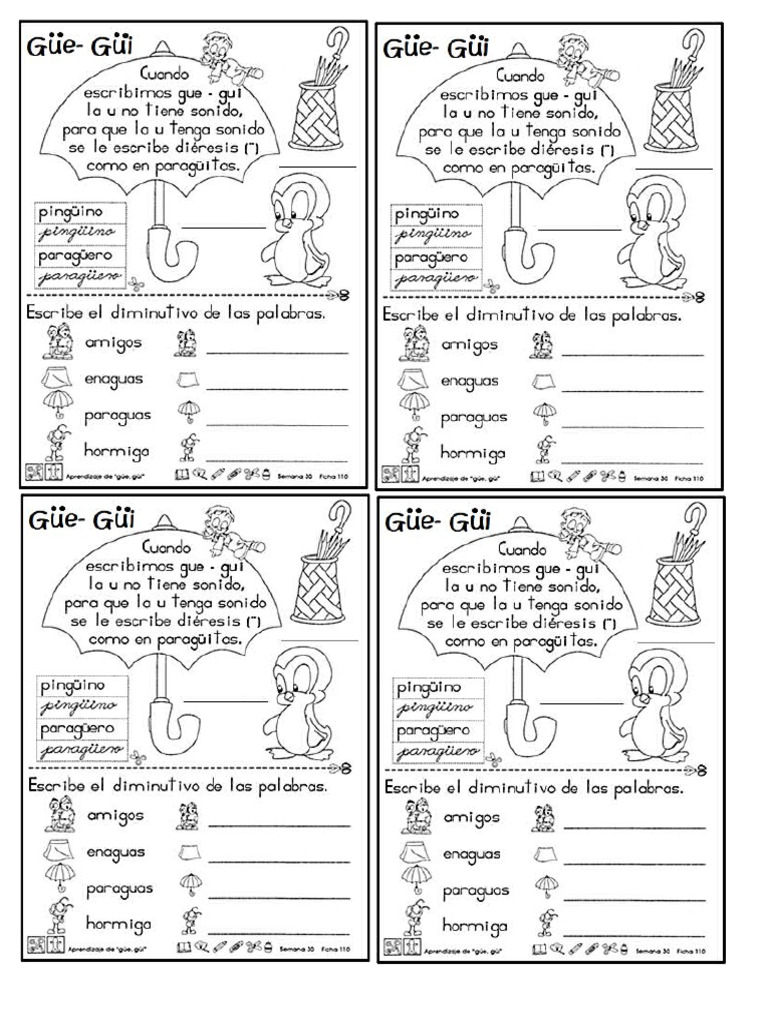 Güe- Güi
Cuando
escribimos gue - gui
la u no tiene sonido,
para que la u tenga sonido
se le escribe diéresis (¨)
como en paragüitas.
pingüino
pingüino
paragüero
paragüero
Escribe el diminutivo de las palabras.
amigos
enaguas
paraguas
hormiga
Aprendizaje de "güe, gü"
Semana 30 Ficha 110
Güe- Güi
Cuando
escribimos gue - gui
la u no tiene sonido,
para que la u tenga sonido
se le escribe diéresis (¨)
como en paragüitas.
pingüino
pingüino
paragüero
paragüero
Escribe el diminutivo de las palabras.
amigos
enaguas
paraguas
hormiga
Aprendizaje de "güe, gü"
Semana 30 Ficha 110
Güe- Güi
Cuando
escribimos gue - gui
la u no tiene sonido,
para que la u tenga sonido
se le escribe diéresis (¨)
como en paragüitas.
pingüino
pingüino
paragüero
paragüero
Escribe el diminutivo de las palabras.
amigos
enaguas
paraguas
hormiga
Aprendizaje de "güe, gü"
Semana 30 Ficha 110
Güe- Güi
Cuando
escribimos gue - gui
la u no tiene sonido,
para que la u tenga sonido
se le escribe diéresis (¨)
como en paragüitas.
pingüino
pingüino
paragüero
paragüero
Escribe el diminutivo de las palabras.
amigos
enaguas
paraguas
hormiga
Aprendizaje de "güe, gü"
Semana 30 Ficha 110